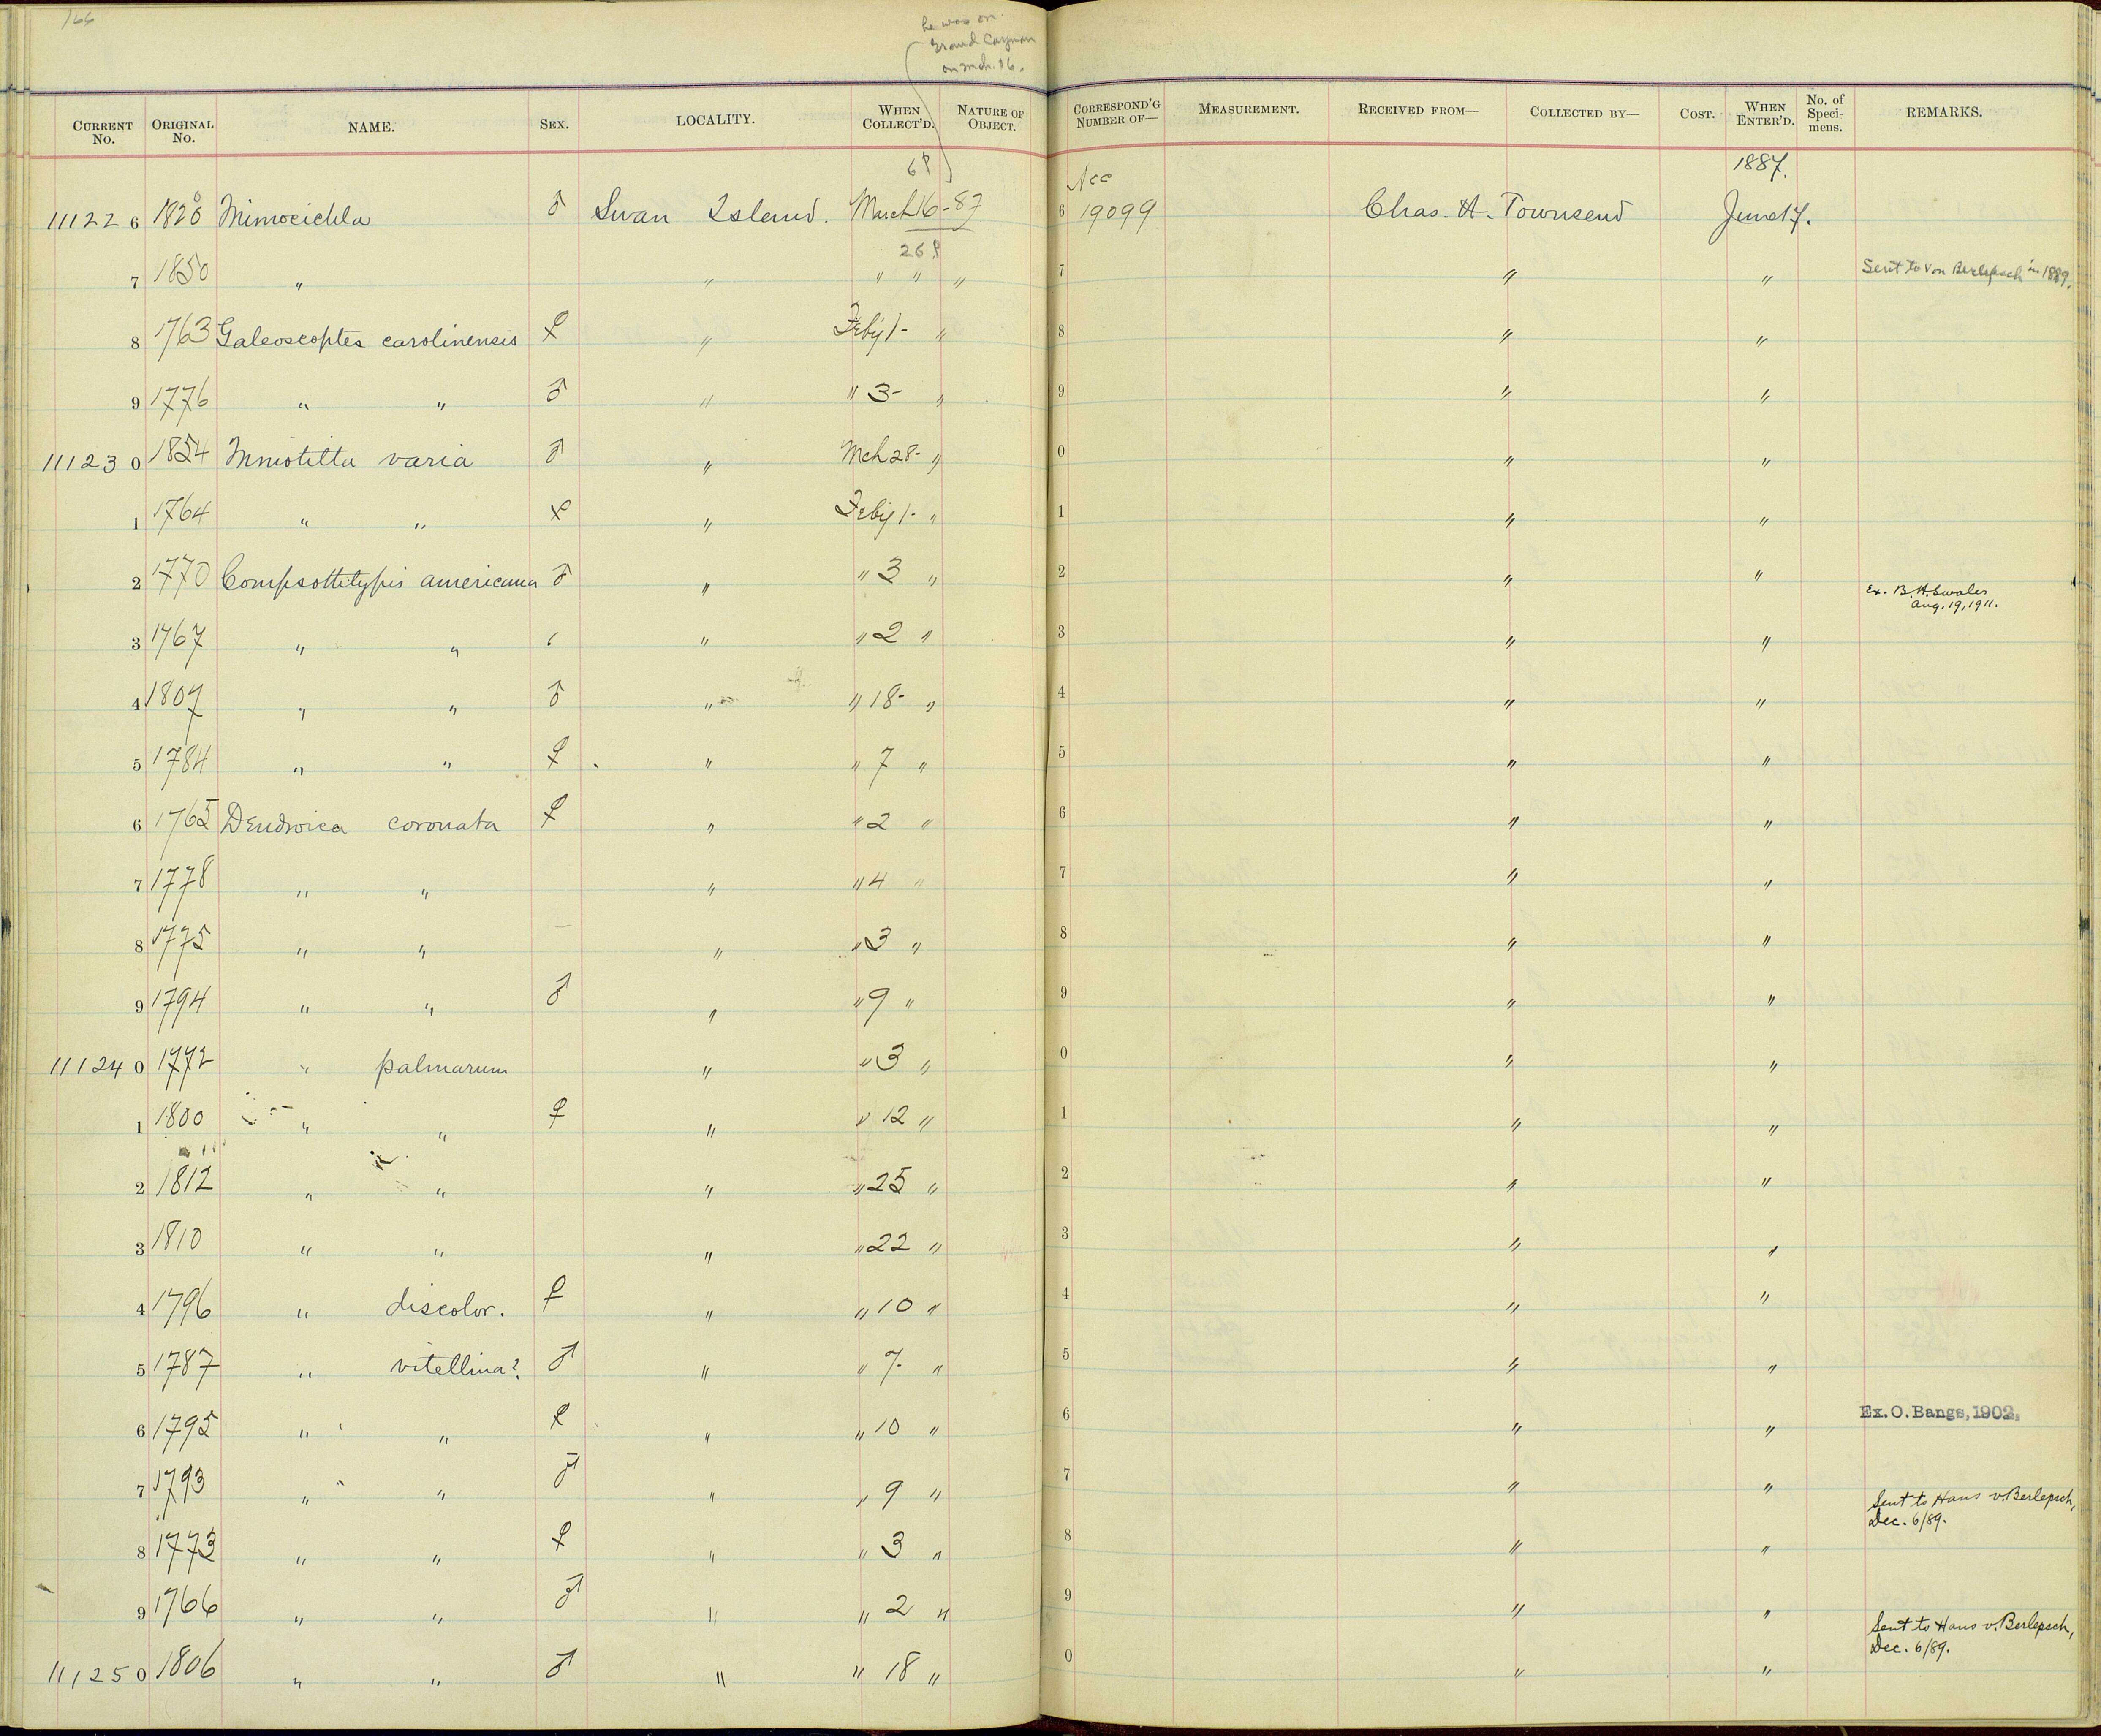 166
he was on
Grand Cayman
on Mch. 16.
CURRENT No. ORIGINAL No. NAME. SEX. LOCALITY. WHEN COLLECT'D. NATURE OF OBJECT. CORRESPOND'G NUMBER OF— MEASUREMENT. RECEIVED FROM— COLLECTED BY— COST. WHEN ENTER'D. No. of Speci-mens. REMARKS.
6? Acc 1887.
111226 1826 Mimocichla ♂ Swan Island. March 16-87 6 19099 Chas. H. Townsend June 17.
26?
7 1850 " " " " " 7 " " Sent to von Berlepsch in 1889.
8 1763 Galeoscoptes carolinensis ♀ " Feby 1- " 8 " "
9 1776 " " ♂ " " 3- " 9 " "
111230 1854 Mniotilta varia ♂ " Mch 28- " 0 " "
1 1764 " " ♀ " Feby 1- " 1 " "
2 1770 Compsothlypis americana ♂ " " 3 " 2 " " Ex. B. H. Swales
Aug. 19, 1911.
3 1767 " " " " " 2 " 3 " "
4 1807 " " ♂ " " 18- " 4 " "
5 1784 " " ♀ " " 7 " 5 " "
6 1765 Dendroica coronata ♀ " " 2 " 6 " "
7 1778 " " " " 4 " 7 " "
8 1775 " " — " " 3 " 8 " "
9 1794 " " ♂ " " 9 " 9 " "
111240 1772 " palmarum " " 3 " 0 " "
1 1800 " " ♀ " " 12 " 1 " "
2 1812 " " " " 25 " 2 " "
3 1810 " " " " 22 " 3 " "
4 1796 " discolor. ♀ " " 10 " 4 " "
5 1787 " vitellina? ♂ " " 7- " 5 " "
6 1795 " " ♀ " " 10 " 6 " " Ex. O. Bangs, 1902.
7 1793 " " ♂ " " 9 " 7 " " Sent to Hans v. Berlepsch,
Dec. 6/89.
8 1773 " " ♀ " " 3 " 8 " "
9 1766 " " ♂ " " 2 " 9 " " Sent to Hans v. Berlepsch,
Dec. 6/89.
111250 1806 " " ♂ " " 18 " 0 " "